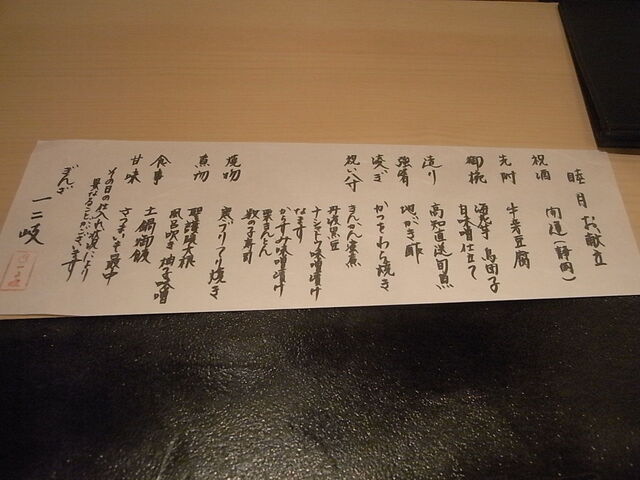 睦月 お献立
祝酒 開運(静岡)
先附 牛蒡豆腐
御椀 海老芋 鳥団子
白味噌仕立て
造り 高知直送旬魚
強肴 地がき酢
凌ぎ かつをわら焼き
祝い八寸 きんかん蜜煮
丹波黒豆
味噌漬け
なます
からすみ味噌漬け
栗きんとん
数の子寿司
焼物 寒ブリてり焼き
煮物 聖護院大根
風呂吹き 柚子味噌
食事 土鍋御飯
甘味 さつまいも最中
その日の仕入れ状況により
異なることがございます
ぎんざ 一二岐